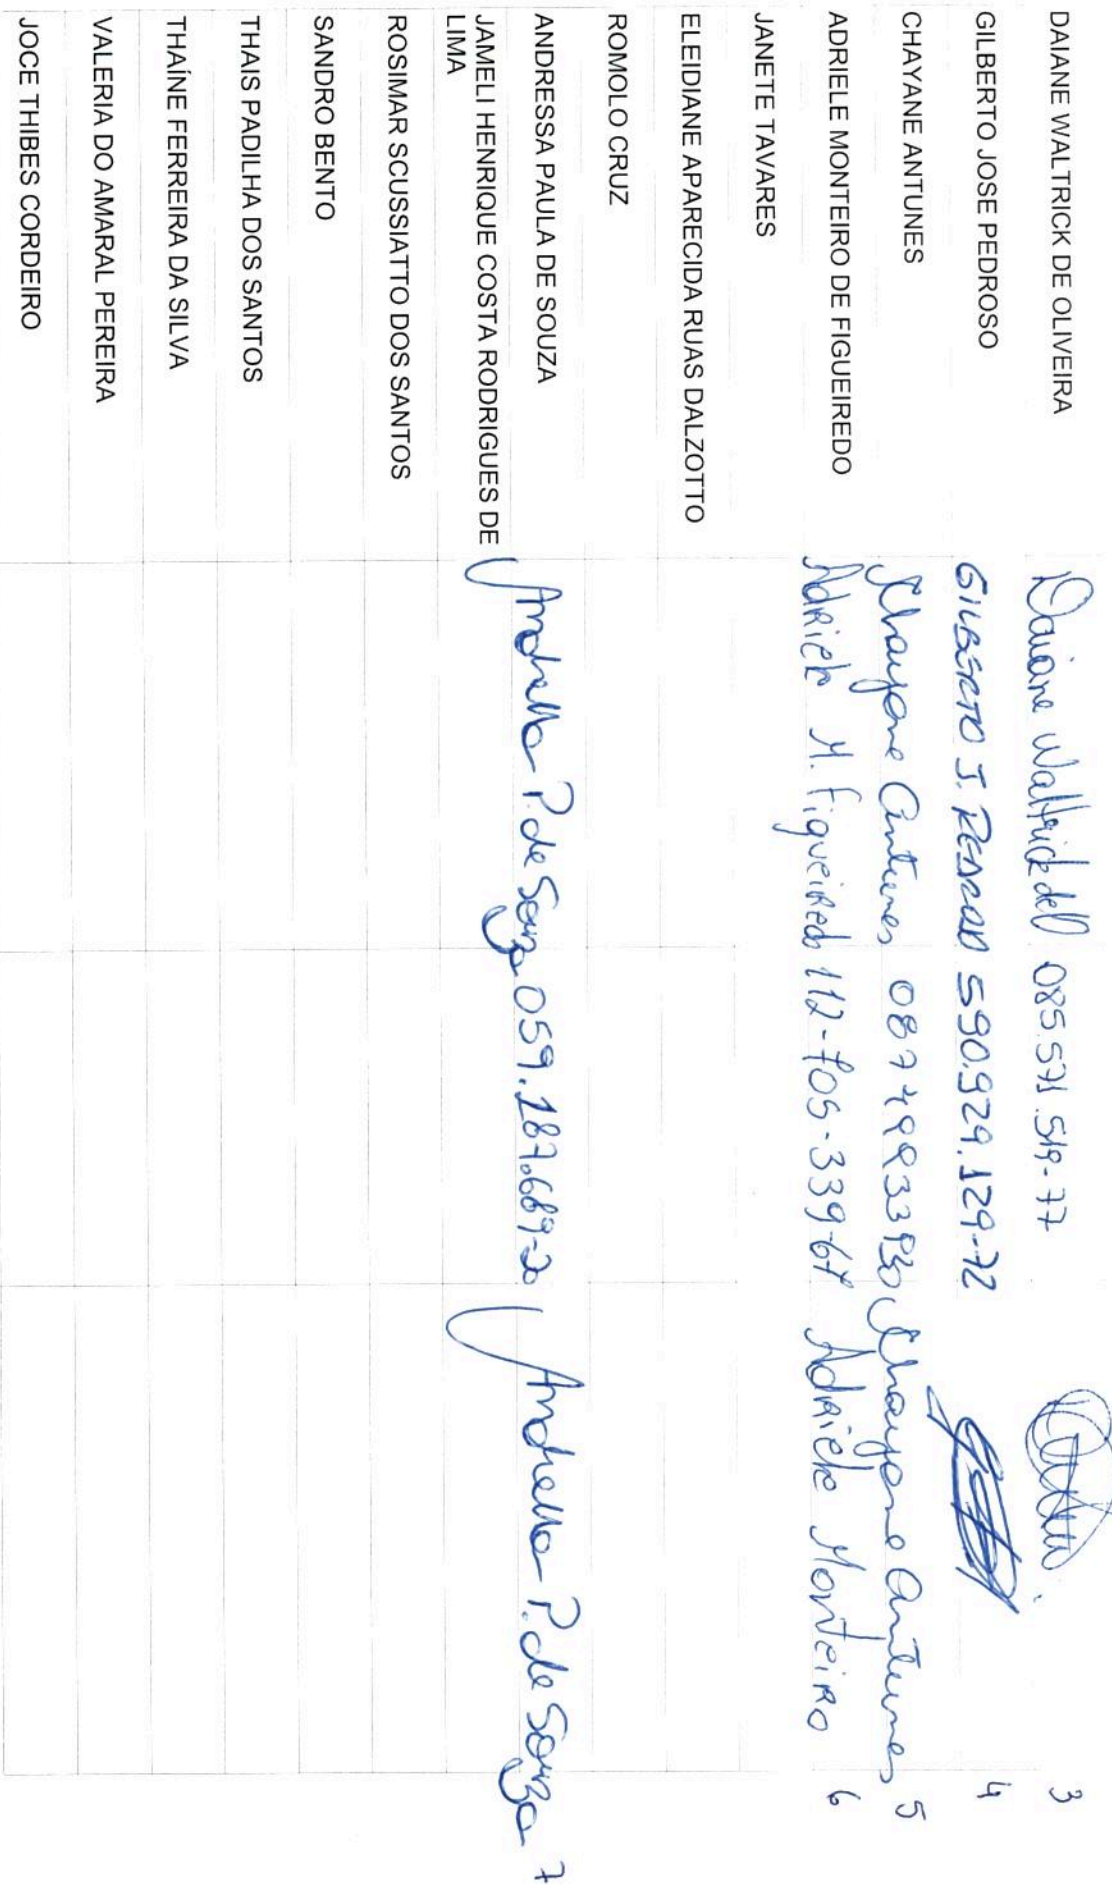 DAIANE WALTRICK DE OLIVEIRA Daiane Waltrick de O 085.571.519-77 3
GILBERTO JOSE PEDROSO GILBERTO J. PEDROSO 590.929.129-72 4
CHAYANE ANTUNES Chayane Antunes 08749933930 Chayane Antunes 5
ADRIELE MONTEIRO DE FIGUEIREDO Adriele M. Figueiredo 112-705-339-67 Adriele Monteiro 6
JANETE TAVARES
ELEIDIANE APARECIDA RUAS DALZOTTO
ROMOLO CRUZ
ANDRESSA PAULA DE SOUZA Andressa P. de Souza 059.187.689-20 Andressa P. de Souza 7
JAMELI HENRIQUE COSTA RODRIGUES DE
LIMA
ROSIMAR SCUSSIATTO DOS SANTOS
SANDRO BENTO
THAIS PADILHA DOS SANTOS
THAÍNE FERREIRA DA SILVA
VALERIA DO AMARAL PEREIRA
JOCE THIBES CORDEIRO